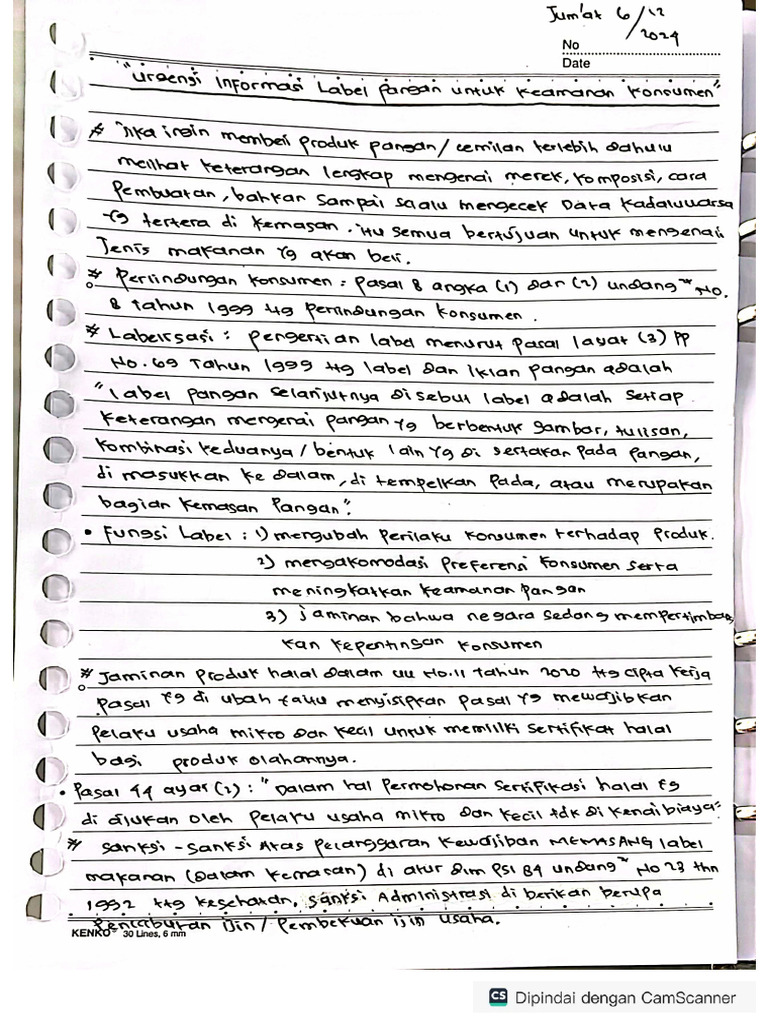 Jum'at 6/12
2024
No
Date
"Urgensi Informasi Label Pangan untuk Keamanan Konsumen"
* Jika ingin membeli produk pangan/ cemilan terlebih dahulu
melihat keterangan lengkap mengenai merek, komposisi, cara
Pembuatan, bahkan sampai selalu mengecek Data Kadaluwarsa
yg tertera di kemasan. itu semua bertujuan untuk mengenali
Jenis makanan yg akan beli.
* Perlindungan Konsumen : Pasal 8 angka (1) dan (2) undang" No.
8 tahun 1999 ttg Perlindungan Konsumen.
* Labelisasi : Pengertian label menurut Pasal 1 ayat (3) PP
No. 69 Tahun 1999 ttg label dan iklan pangan adalah
"Label pangan selanjutnya disebut label adalah setiap
keterangan mengenai pangan yg berbentuk gambar, tulisan,
kombinasi keduanya / bentuk lain yg di sertakan pada pangan,
di masukkan ke dalam, di tempelkan pada, atau merupakan
bagian kemasan pangan".
• Fungsi Label : 1) mengubah Perilaku konsumen terhadap Produk.
2) mengakomodasi Preferensi konsumen serta
meningkatkan keamanan pangan
3) jaminan bahwa negara sedang mempertimbang
kan kepentingan konsumen
* Jaminan Produk halal dalam UU No.11 tahun 2020 ttg cipta kerja
Pasal yg di ubah yaitu menyisipkan pasal yg mewajibkan
Pelaku usaha mikro dan kecil untuk memiliki sertifikat halal
bagi produk olahannya.
• Pasal 44 ayat (2) : "Dalam hal Permohonan Sertifikasi halal yg
di ajukan oleh Pelaku usaha mikro dan kecil tdk di kenai biaya".
* Sanksi - Sanksi Atas Pelanggaran Kewajiban MEMASANG label
makanan (dalam kemasan) di atur dlm PSl 84 undang" No 23 thn
1992 ttg kesehatan, sanksi Administrasi di berikan berupa
Pencabutan ijin / Pembekuan ijin usaha.
KENKO® 30 Lines, 6 mm
CS Dipindai dengan CamScanner